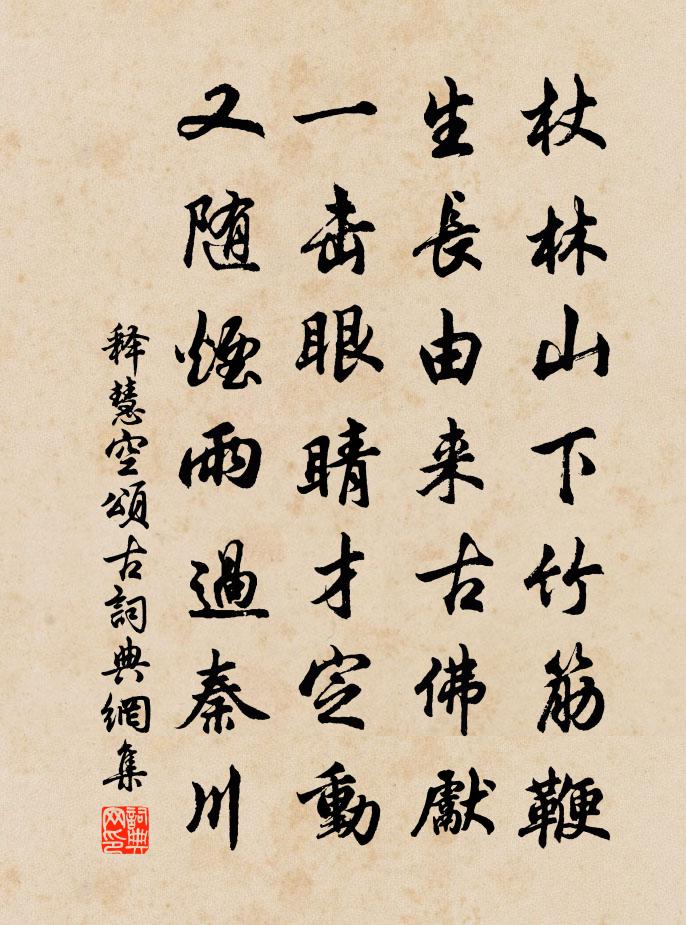 杖林山下竹筋鞭
生長由来古佛獻
一击眼睛才定動
又随煙雨過秦川
释慧空頌古詞典網集
詞典网印